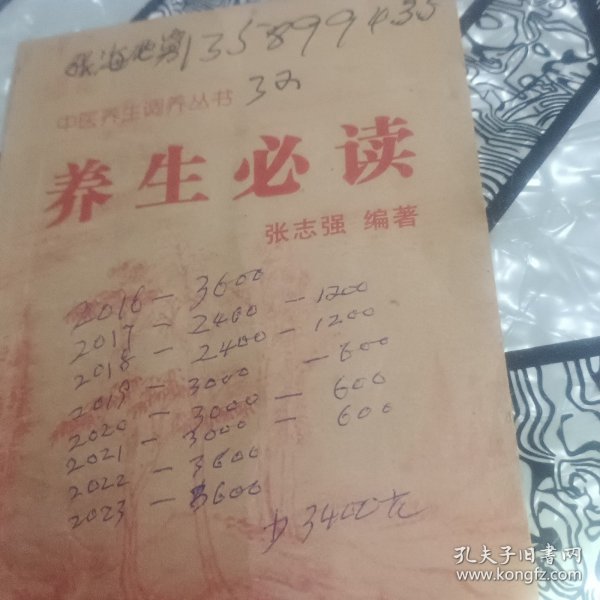 张海 135899435
32
中医养生调养丛书
养生必读
张志强 编著
2016 - 3600
2017 - 2400 - 1200
2018 - 2400 - 1200
2019 - 3000 - 600
2020 - 3000 - 600
2021 - 3000 - 600
2022 - 3600
2023 - 3600
3400元
孔夫子旧书网
www.kongfz.com